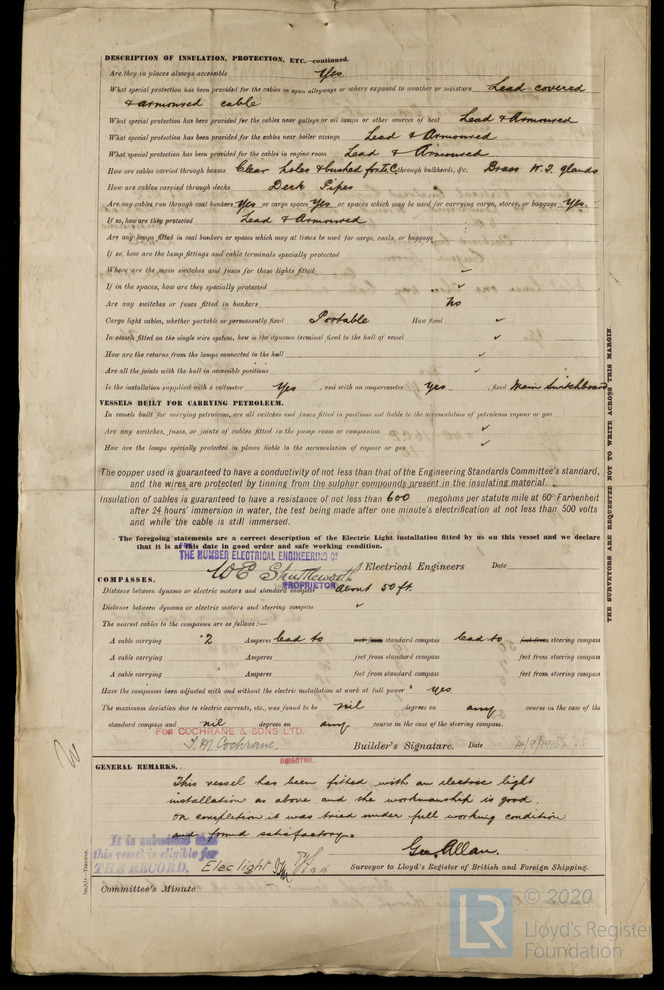 DESCRIPTION OF INSULATION, PROTECTION, ETC.—continued.
Are they in places always accessible Yes
What special protection has been provided for the cables in open alleyways or where exposed to weather or moisture Lead covered
& armoured cable
What special protection has been provided for the cables near galleys or oil lamps or other sources of heat Lead & Armoured
What special protection has been provided for the cables near boiler casings Lead & Armoured
What special protection has been provided for the cables in engine room Lead & Armoured
How are cables carried through beams Clear holes & bushed for T.C. through bulkheads, &c. Brass W.T. glands
How are cables carried through decks Deck Pipes
Are any cables run through coal bunkers Yes or cargo spaces Yes or spaces which may be used for carrying cargo, stores, or baggage Yes.
If so, how are they protected Lead & Armoured
Are any lamps fitted in coal bunkers or spaces which may at times be used for cargo, coals, or baggage
If so, how are the lamp fittings and cable terminals specially protected
Where are the main switches and fuses for these lights fitted ✓
If in the spaces, how are they specially protected ✓
Are any switches or fuses fitted in bunkers No
Cargo light cables, whether portable or permanently fixed Portable How fixed ✓
In vessels fitted on the single wire system, how is the dynamo terminal fixed to the hull of vessel ✓
How are the returns from the lamps connected to the hull ✓
Are all the joints with the hull in accessible positions ✓
Is the installation supplied with a voltmeter Yes , and with an amperemeter Yes , fixed Main Switchboard
VESSELS BUILT FOR CARRYING PETROLEUM.
In vessels built for carrying petroleum, are all switches and fuses fitted in positions not liable to the accumulation of petroleum vapour or gas
Are any switches, fuses, or joints of cables fitted in the pump room or companion ✓
How are the lamps specially protected in places liable to the accumulation of vapour or gas ✓
The copper used is guaranteed to have a conductivity of not less than that of the Engineering Standards Committee's standard,
and the wires are protected by tinning from the sulphur compounds present in the insulating material.
Insulation of cables is guaranteed to have a resistance of not less than 600 megohms per statute mile at 60° Farhenheit
after 24 hours' immersion in water, the test being made after one minute's electrification at not less than 500 volts
and while the cable is still immersed.
The foregoing statements are a correct description of the Electric Light installation fitted by us on this vessel and we declare
that it is at this date in good order and safe working condition.
THE HUMBER ELECTRICAL ENGINEERING Co
W E Shuttleworth Electrical Engineers Date
PROPRIETOR
COMPASSES.
Distance between dynamo or electric motors and standard compass About 50 ft.
Distance between dynamo or electric motors and steering compass ✓
The nearest cables to the compasses are as follows:—
A cable carrying 2 Amperes lead to feet from standard compass lead to feet from steering compass
A cable carrying Amperes feet from standard compass feet from steering compass
A cable carrying Amperes feet from standard compass feet from steering compass
Have the compasses been adjusted with and without the electric installation at work at full power yes
The maximum deviation due to electric currents, etc., was found to be nil degrees on any course in the case of the
standard compass and nil degrees on any course in the case of the steering compass.
FOR COCHRANE & SONS LTD.
T. M. Cochrane. Builder's Signature. Date
DIRECTOR
GENERAL REMARKS.
This vessel has been fitted with an electric light
installation as above and the workmanship is good.
On completion it was tried under full working condition
and found satisfactory.
Geo. Allan.
Surveyor to Lloyd's Register of British and Foreign Shipping.
It is submitted that
this vessel is eligible for
THE RECORD. Elec light
Committee's Minute
THE SURVEYORS ARE REQUESTED NOT TO WRITE ACROSS THIS MARGIN.
LR © 2020
Lloyd's Register
Foundation